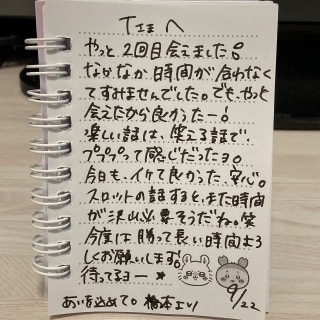 T江 へ
やっと2回目会えました!
なかなか時間が合わなく
てすみませんでした。でも、やっと
会えたから良かったー!
楽しい話は、笑える話で、
プププって感じだったヨ。
今日も、イケて良かった、安心。
スロットの話すると、また時間
が沢山必要そうだね。笑
今度は勝って長い時間よろ
しくお願いします。
待ってるヨー★
9/22
あいを込めて。橋本より